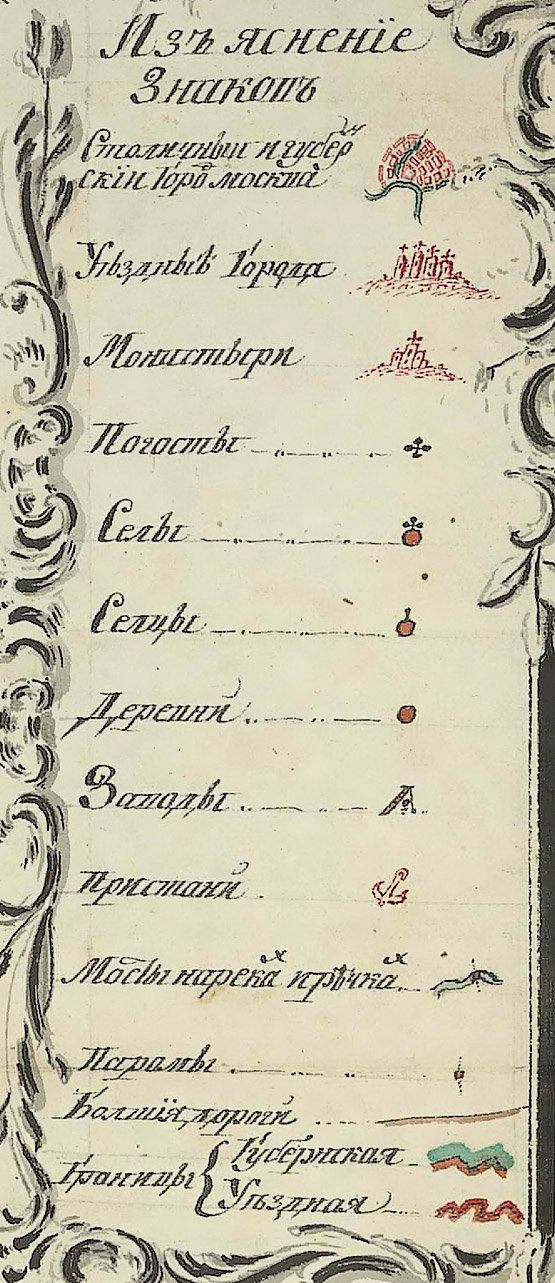 Изъясненїе
Знаковъ
Столичный и губер
скїи Город москва
Уѣздныѣ Города
Монастыри
Погосты
Селы
Селцы
Деревни
Заводы
Пристани
Мосты на рекахъ и рѣчкахъ
Паромы
Болшїя дороги
Границы { Губернская
Уѣздная